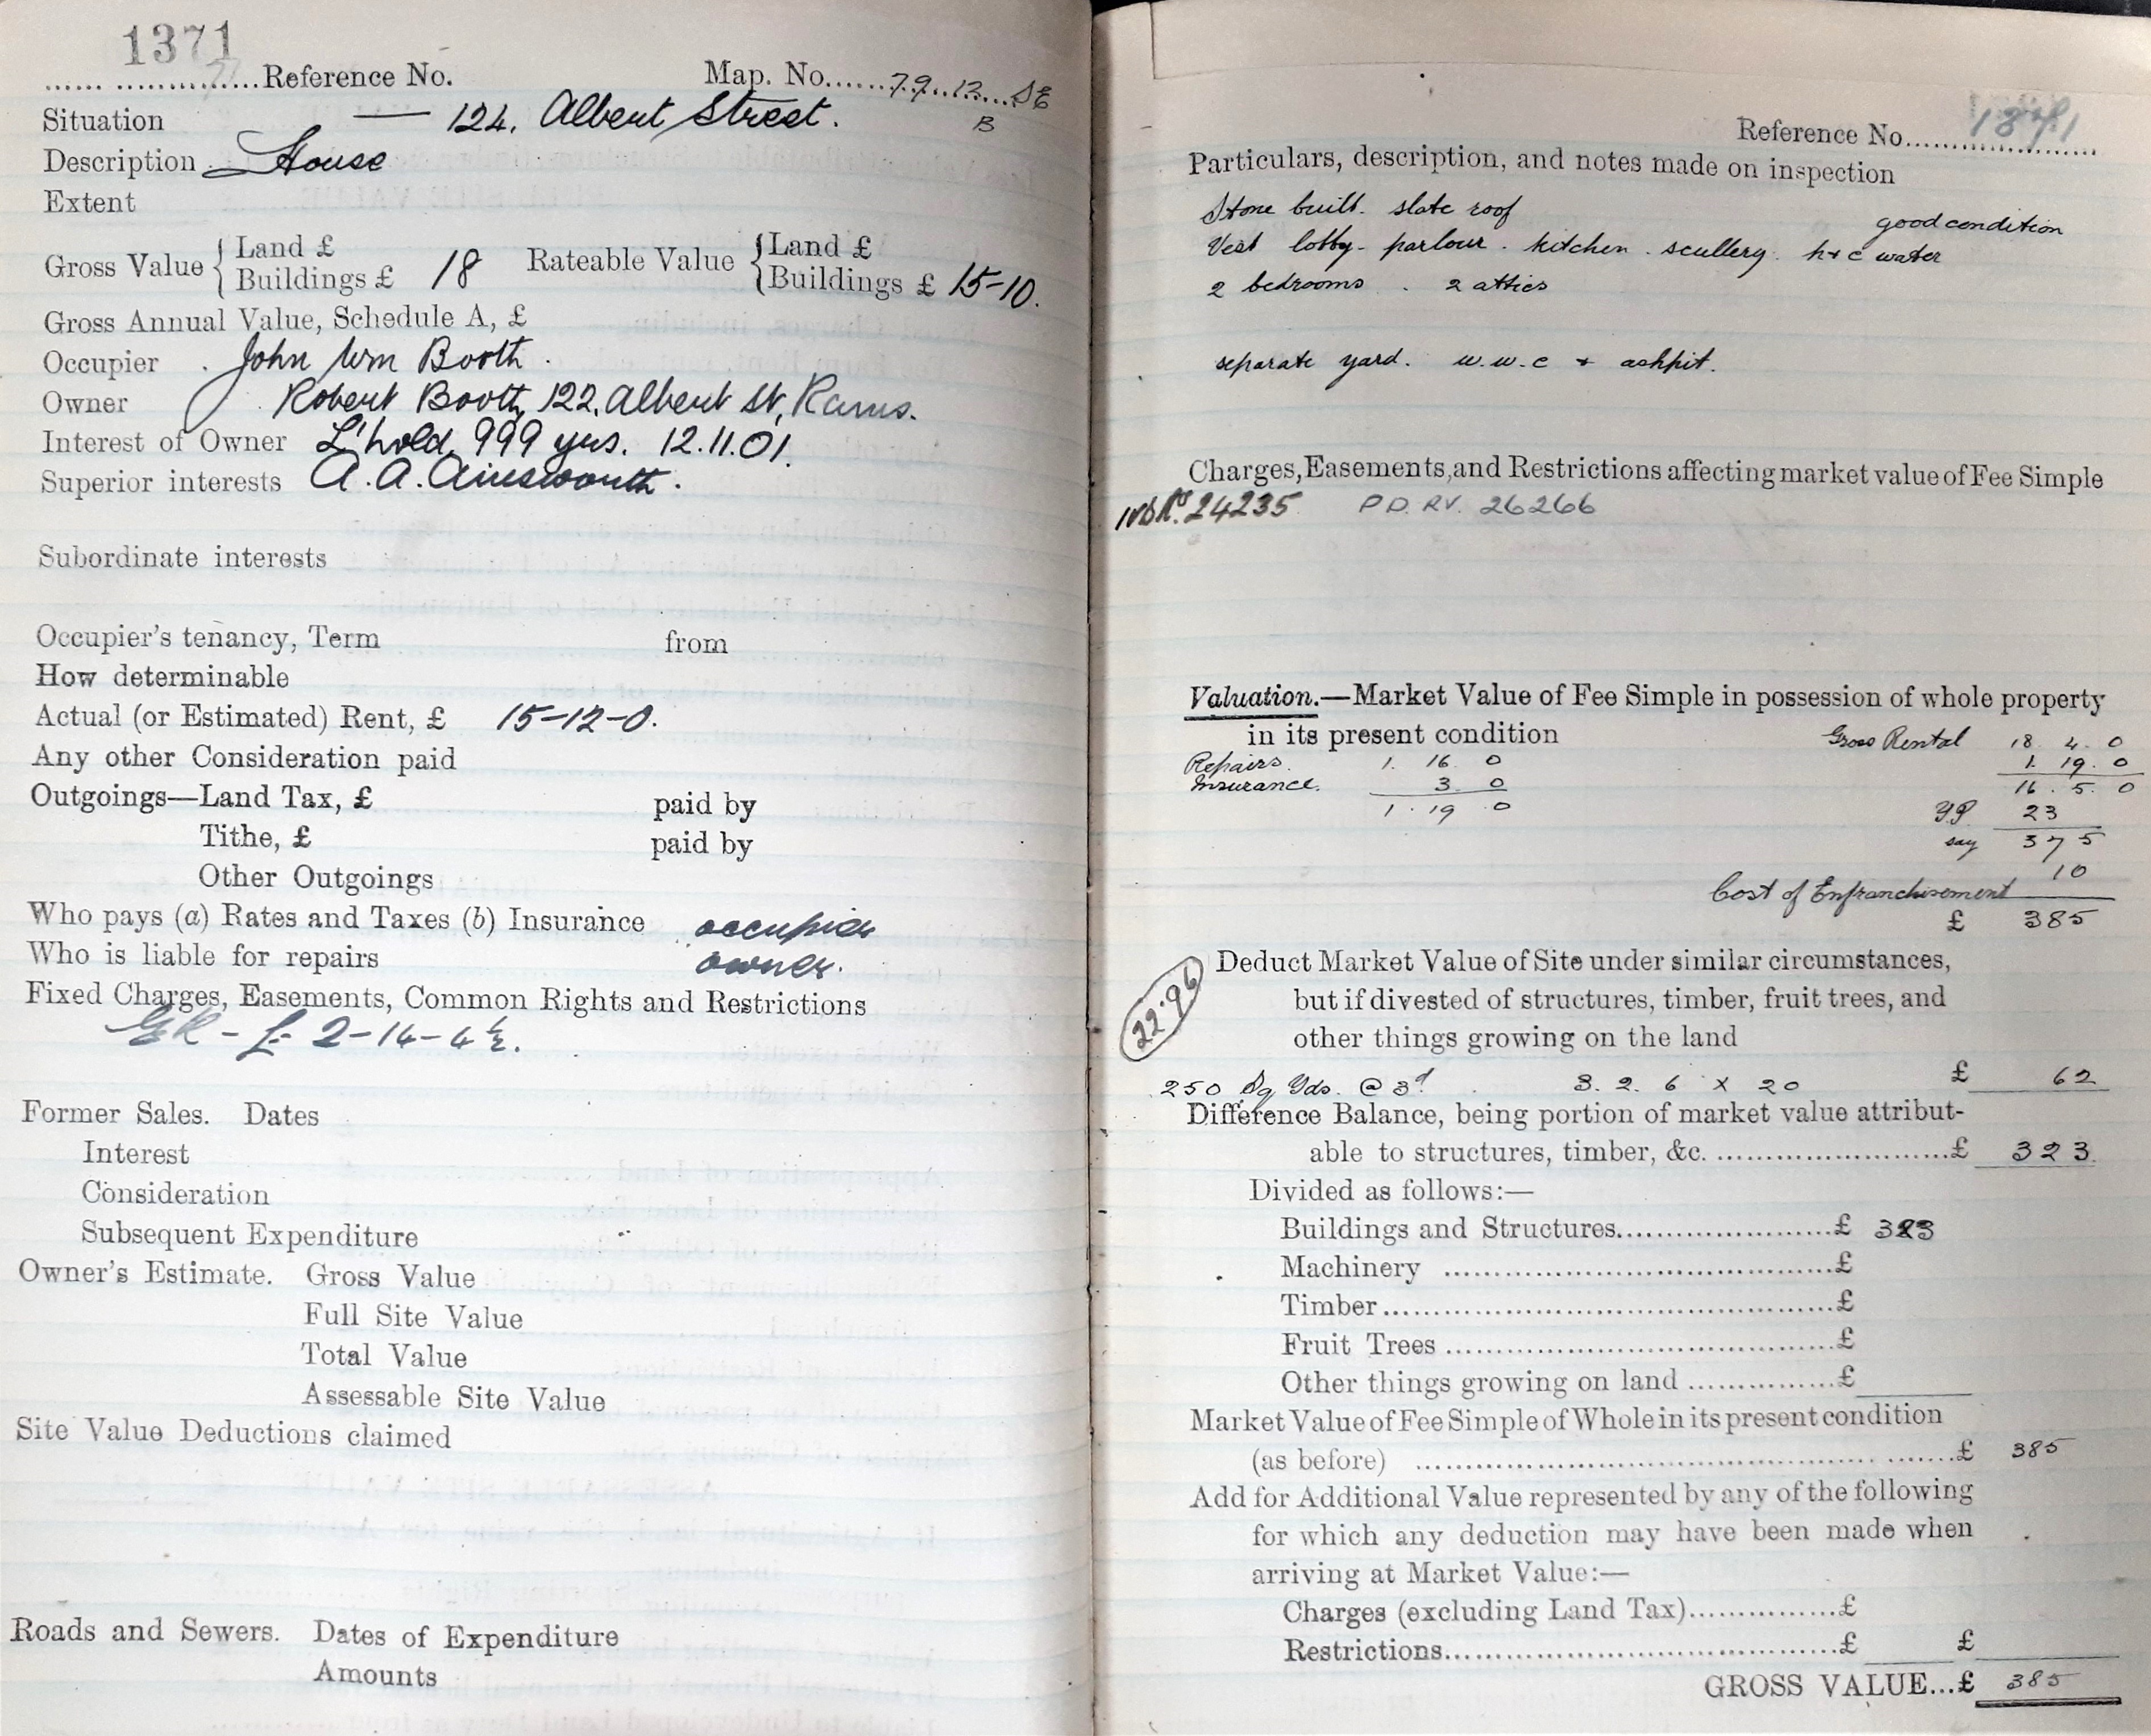 1371
...... ..............Reference No. Map. No......79.12...SE
B
Situation — 124, Albert Street.
Description House
Extent
Gross Value { Land £ Rateable Value { Land £
Buildings £ 18 Buildings £ 15-10.
Gross Annual Value, Schedule A, £
Occupier . John Wm Booth .
Owner Robert Booth, 122, Albert St, Rams.
Interest of Owner L'hold, 999 yrs. 12.11.01.
Superior interests A. A. Ainsworth.
Subordinate interests
Occupier's tenancy, Term from
How determinable
Actual (or Estimated) Rent, £ 15-12-0.
Any other Consideration paid
Outgoings—Land Tax, £ paid by
Tithe, £ paid by
Other Outgoings
Who pays (a) Rates and Taxes (b) Insurance occupier
Who is liable for repairs owner.
Fixed Charges, Easements, Common Rights and Restrictions
GR - £ 2-14-4½.
Former Sales. Dates
Interest
Consideration
Subsequent Expenditure
Owner's Estimate. Gross Value
Full Site Value
Total Value
Assessable Site Value
Site Value Deductions claimed
Roads and Sewers. Dates of Expenditure
Amounts
Reference No. 1371
Particulars, description, and notes made on inspection
Stone built. slate roof good condition
Vest lobby - parlour . kitchen . scullery. h+c water
2 bedrooms . 2 attics
separate yard. w.w.c + ashpit.
Charges, Easements, and Restrictions affecting market value of Fee Simple
24235 P.D. RV. 26266
Valuation.—Market Value of Fee Simple in possession of whole property
in its present condition Gross Rental 18 4. 0
Repairs. 1. 16 0 1. 19. 0
Insurance. 3. 0 16 . 5. 0
1 . 19 . 0 YP 23
say 375
10
Cost of Enfranchisement
£ 385
22.96
Deduct Market Value of Site under similar circumstances,
but if divested of structures, timber, fruit trees, and
other things growing on the land
250 Sq Yds. @ 3d 3. 2. 6 x 20 £ 62
Difference Balance, being portion of market value attribut-
able to structures, timber, &c. ........................£ 323.
Divided as follows:—
Buildings and Structures......................£ 323
Machinery ........................................£
Timber..............................................£
Fruit Trees .......................................£
Other things growing on land ...............£
Market Value of Fee Simple of Whole in its present condition
(as before) ................................................ .......£ 385
Add for Additional Value represented by any of the following
for which any deduction may have been made when
arriving at Market Value:—
Charges (excluding Land Tax)...............£
Restrictions.......................................£ £
GROSS VALUE...£ 385